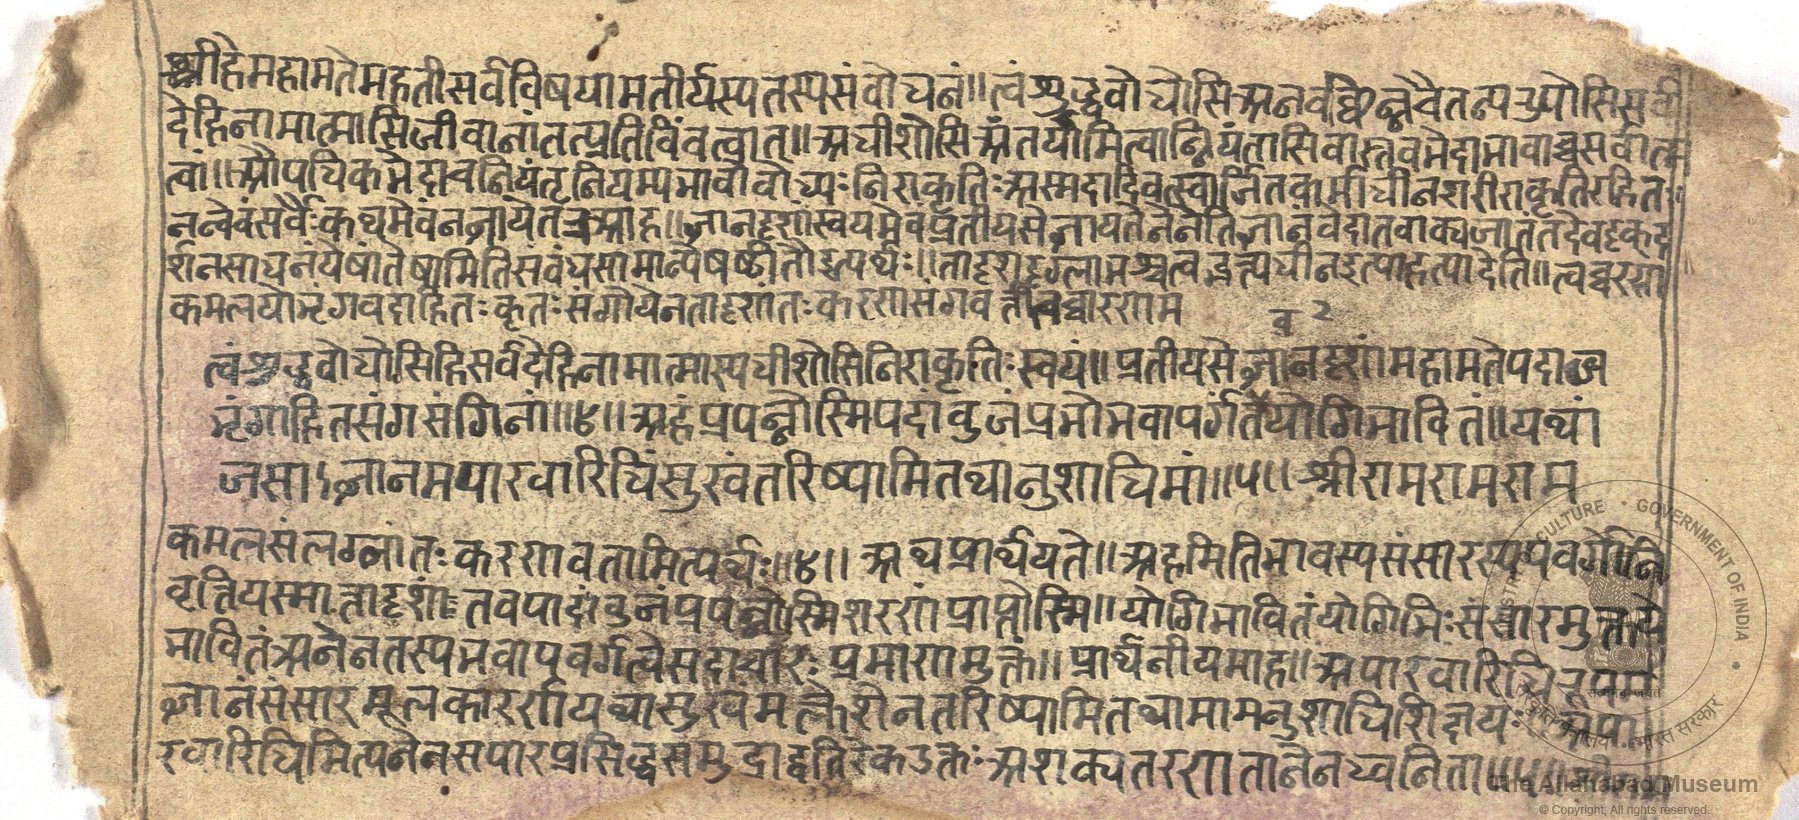 श्रीहेमहामतेमहतीसर्वविषयामतीर्यस्यतस्यसंवोधनं॥त्वंशुद्धवोधोसिअनवछिन्नचैतन्यरूपोसिसर्व
देहिनामात्मासिजीवानांतत्प्रतिविंवत्वात्॥अधीशोसिअंतर्यामित्वान्नियंतासिवास्तवभेदाभावाच्चसर्वात्म
त्वां॥औपधिकभेदाच्चनियंतृनियम्यभावोवोध्यःनिराकृतिःअस्मदादिवत्स्वार्जितकर्माधीनशरीराकृतिरहितः
नन्वेवंसर्वैःकथमेवंनज्ञायेतत्रआह॥ज्ञानदृशांस्वयमेवप्रतीयसेज्ञायतेनेनेतिज्ञानवेदांतवाक्यजातंतदेवदृक्द
र्शनसाधनंयेषांतेषामितिसंवंधसामान्येषष्ठीतोइत्यर्थः॥तादृशदृग्लाभश्चत्वद्भक्त्यधीनइत्याहत्पादेति॥त्वच्चरण
कमलयोर्भृंगवदाहितःकृतःसंगोयेनतादृशांतःकरणसंगवतांत्वच्चारणाम
व २
त्वंशुद्धवोधोसिहिसर्वदेहिनामात्मास्यधीशोसिनिराकृतिःस्वयं॥प्रतीयसेज्ञानदृशांमहामतेपदाब्ज
भृंगाहितसंगसंगिनां॥४॥अहंप्रपन्नोस्मिपदांवुजंप्रभोभवापर्गंतेयोगिभावितं॥यथां
जसाज्ञानमपारवारिधिंसुखंतरिष्यामितथानुशाधिमां॥५॥श्रीरामरामराम
कमलसंलग्नांतःकरणवतामित्यर्थः॥४॥अथप्रार्थयते॥अहमितिभावस्यसंसारस्यपवर्गोनि
वृत्तिर्यस्मात्तादृशांतवपादांवुजंप्रपन्नोस्मिशरणंप्राप्तोस्मि॥योगिभावितंयोगिभिःसंसारमुक्तये
भावितंअनेनतस्यभवापवर्गत्वेसदाचारःप्रमाणमुक्तं॥प्रार्थनीयमाह॥अपारवारिधिरूपम
ज्ञानंसंसारमूलकारणंयथासुखमक्लेशेनतरिष्यामितथामामनुशाधिशिक्षयःअपा
रवारिधिमित्यनेनसपारप्रसिद्धसमुद्राद्व्यतिरेकउक्तःअशक्यतरणतानेनध्वनिता॥
The Allahabad Museum
© Copyright, All rights reserved.